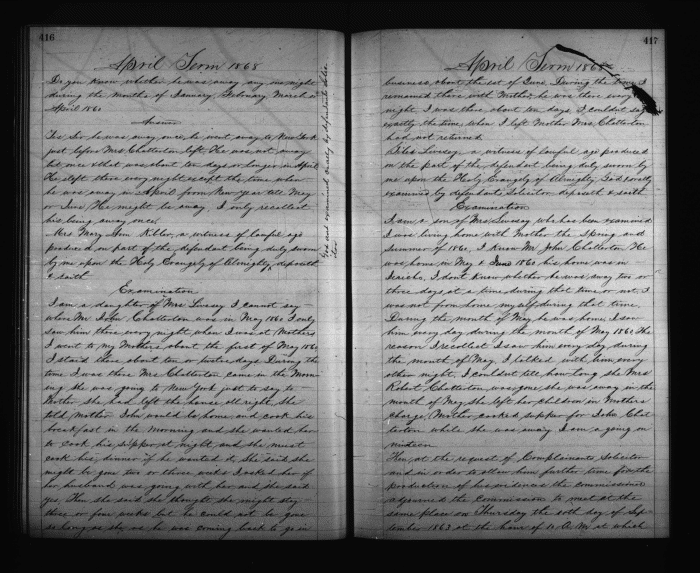 416
April Term 1868
Do you know whether he was away any in night
during the months of January February March or
April 1861
Answer
Yes Sir he was away once, he went away to New York
just before Mrs Chatterton left. He was not away
but once & that was about ten days or longer in April
He slept there every night except the time when
he was away in April from New year till May
or June, He might be away. I only recollect
his being away once.
Mrs Mary Ann Killer, a witness of lawful age
produced on part of the defendant being duly sworn
by me upon the Holy Evangely of Almighty, deposeth
& saith
Examination
I am a daughter of Mrs Lucey I cannot say
when Mr John Chatterton was in May 1861 I only
saw him there every night, when I was at Mothers
I went to my Mothers about the first of May 1861
I staid there about ten or days. During the
time I was there Mrs Chatterton came in the Morn
ing She was going to New York just to say to
Mother, she had left the house all right, She
told Mother John would be home, and cook his
breakfast in the morning and she wanted her
to cook his supper at night, and she must
cook his dinner if he wanted it, She said she
might be gone two or three weeks I asked her if
her husband was going with her, and she said
yes, Then she said she thought she might stay
three or four weeks but he could not be gone
so long as she as he was coming back to go in
and examined orally by defendants Solici
tor
417
April Term 1868
business, about the 1st of June. During the time I
remained there with Mother, he was there every
night, I was there about ten days, I couldnt say
exactly the time, when I left Mother Mrs Chatterton
had not returned
Lucey, a witness of lawful age produced
on the part of the defendant being duly sworn by
me upon the Holy Evangely of Almighty God & orally
examined by defendants Solicitor deposeth & saith
Examination
I am a son of Mrs Lucey who has been examined
I was living home with Mother the Spring and
Summer of 1861, I know Mr John Chatterton He
was home in May & June 1861 his home was in
Jericho, I dont know whether he was away two or
three days at a time during that time or not, I
was not from home myself during that time.
During the month of May he was home, I saw
him every day during the month of May 1861 The
reason I recollect I saw him every day during
the month of May, I talked with him every
other night, I couldnt tell, how long the Mrs
Robert Chatterton was gone, she was away in the
month of May, she left her children in Mothers
charge, Mother cooked supper for John Chat
terton while she was away I am a going on
nineteen
Then at the request of Complainants Solicitor
and in order to allow him further time for the
production of his evidence the commissioner
adjourned the Commission to meet at the
same place on Thursday the 10th day of Sep
tember 1863 at the hour of 10 A.M. at which